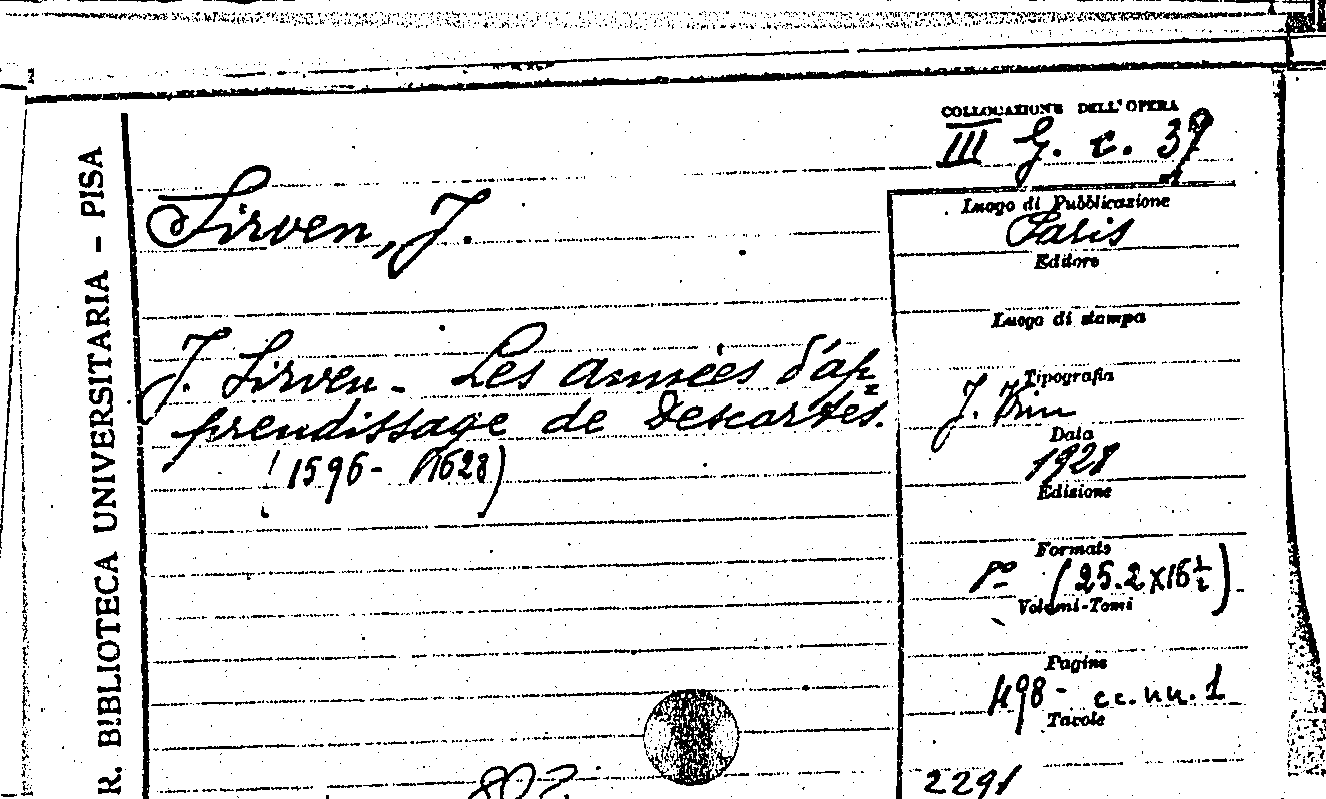 COLLOCAZIONE DELL'OPERA
III G. c. 37
R. BIBLIOTECA UNIVERSITARIA - PISA
Sirven, J.
Luogo di Pubblicazione
Paris
Editore
Luogo di stampa
J. Sirven - Les années d'ap=
prendissage de Descartes.
(1596 - 1628)
Tipografia
J. Vrin
Data
1928
Edizione
Formato
8º (25.2 x 16½)
Volumi-Tomi
Pagine
498 - cc. nn. 1
Tavole
2291